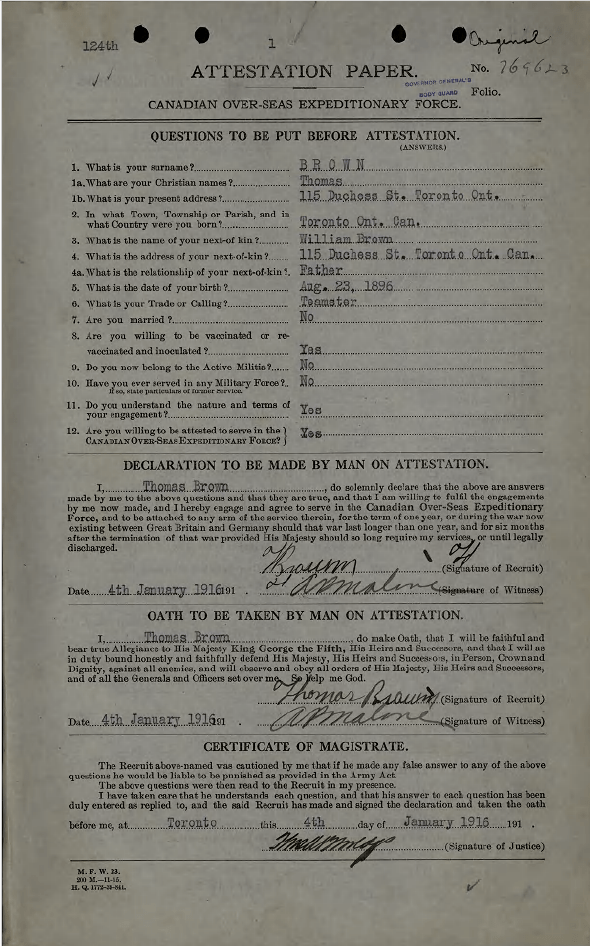 124th
1
Original
ATTESTATION PAPER.
No. 769623
GOVERNOR GENERAL'S
BODY GUARD
Folio.
CANADIAN OVER-SEAS EXPEDITIONARY FORCE.
QUESTIONS TO BE PUT BEFORE ATTESTATION.
(ANSWERS.)
1. What is your surname?
BROWN
1a. What are your Christian names?
Thomas
1b. What is your present address?
115 Duchess St. Toronto Ont.
2. In what Town, Township or Parish, and in
what Country were you born?
Toronto Ont. Can.
3. What is the name of your next-of kin?
William Brown
4. What is the address of your next-of-kin?
115 Duchess St. Toronto Ont. Can.
4a. What is the relationship of your next-of-kin?
Father
5. What is the date of your birth?
Aug. 23, 1896
6. What is your Trade or Calling?
Teamster
7. Are you married?
No
8. Are you willing to be vaccinated or re-
vaccinated and inoculated?
Yes
9. Do you now belong to the Active Militia?
No
10. Have you ever served in any Military Force?
If so, state particulars of former service.
No
11. Do you understand the nature and terms of
your engagement?
Yes
12. Are you willing to be attested to serve in the
CANADIAN OVER-SEAS EXPEDITIONARY FORCE?
Yes
DECLARATION TO BE MADE BY MAN ON ATTESTATION.
I, Thomas Brown, do solemnly declare that the above are answers
made by me to the above questions and that they are true, and that I am willing to fulfil the engagements
by me now made, and I hereby engage and agree to serve in the Canadian Over-Seas Expeditionary
Force, and to be attached to any arm of the service therein, for the term of one year, or during the war now
existing between Great Britain and Germany should that war last longer than one year, and for six months
after the termination of that war provided His Majesty should so long require my services, or until legally
discharged.
Brown (Signature of Recruit)
Date 4th January 1916 191 . (Signature of Witness)
OATH TO BE TAKEN BY MAN ON ATTESTATION.
I, Thomas Brown, do make Oath, that I will be faithful and
bear true Allegiance to His Majesty King George the Fifth, His Heirs and Successors, and that I will as
in duty bound honestly and faithfully defend His Majesty, His Heirs and Successors, in Person, Crown and
Dignity, against all enemies, and will observe and obey all orders of His Majesty, His Heirs and Successors,
and of all the Generals and Officers set over me. So help me God.
Thomas Brown (Signature of Recruit)
Date 4th January 1916 191 . (Signature of Witness)
CERTIFICATE OF MAGISTRATE.
The Recruit above-named was cautioned by me that if he made any false answer to any of the above
questions he would be liable to be punished as provided in the Army Act
The above questions were then read to the Recruit in my presence.
I have taken care that he understands each question, and that his answer to each question has been
duly entered as replied to, and the said Recruit has made and signed the declaration and taken the oath
before me, at Toronto this 4th day of January 1916 191 .
(Signature of Justice)
M. F. W. 23.
200 M.—11-15.
H. Q. 1772-39-841.